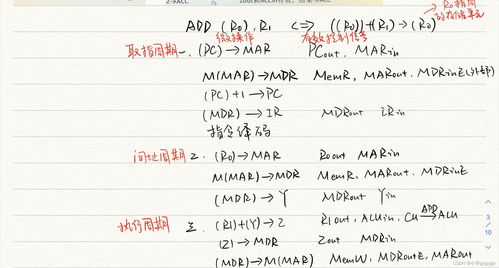 ADD (R0), R1 <=> ((R0))+(R1)→(R0) R0指向的存储单元
微操作 有效控制信号
取指周期一. (PC)→MAR PCout, MARin
M(MAR)→MDR MemR, MARout, MDRinE(外部)
(PC)+1→PC
(MDR)→IR MDRout IRin
指令译码
间址周期 2. (R0)→MAR R0out MARin
M(MAR)→MDR MemR, MARout, MDRinE
(MDR)→Y MDRout Yin
执行周期 三. (R1)+(Y)→Z R1out, ALUin, CU ADD→ALU
(Z)→MDR Zout MDRin
(MDR)→M(MAR) MemW, MDRoutE, MARout
3
/
10